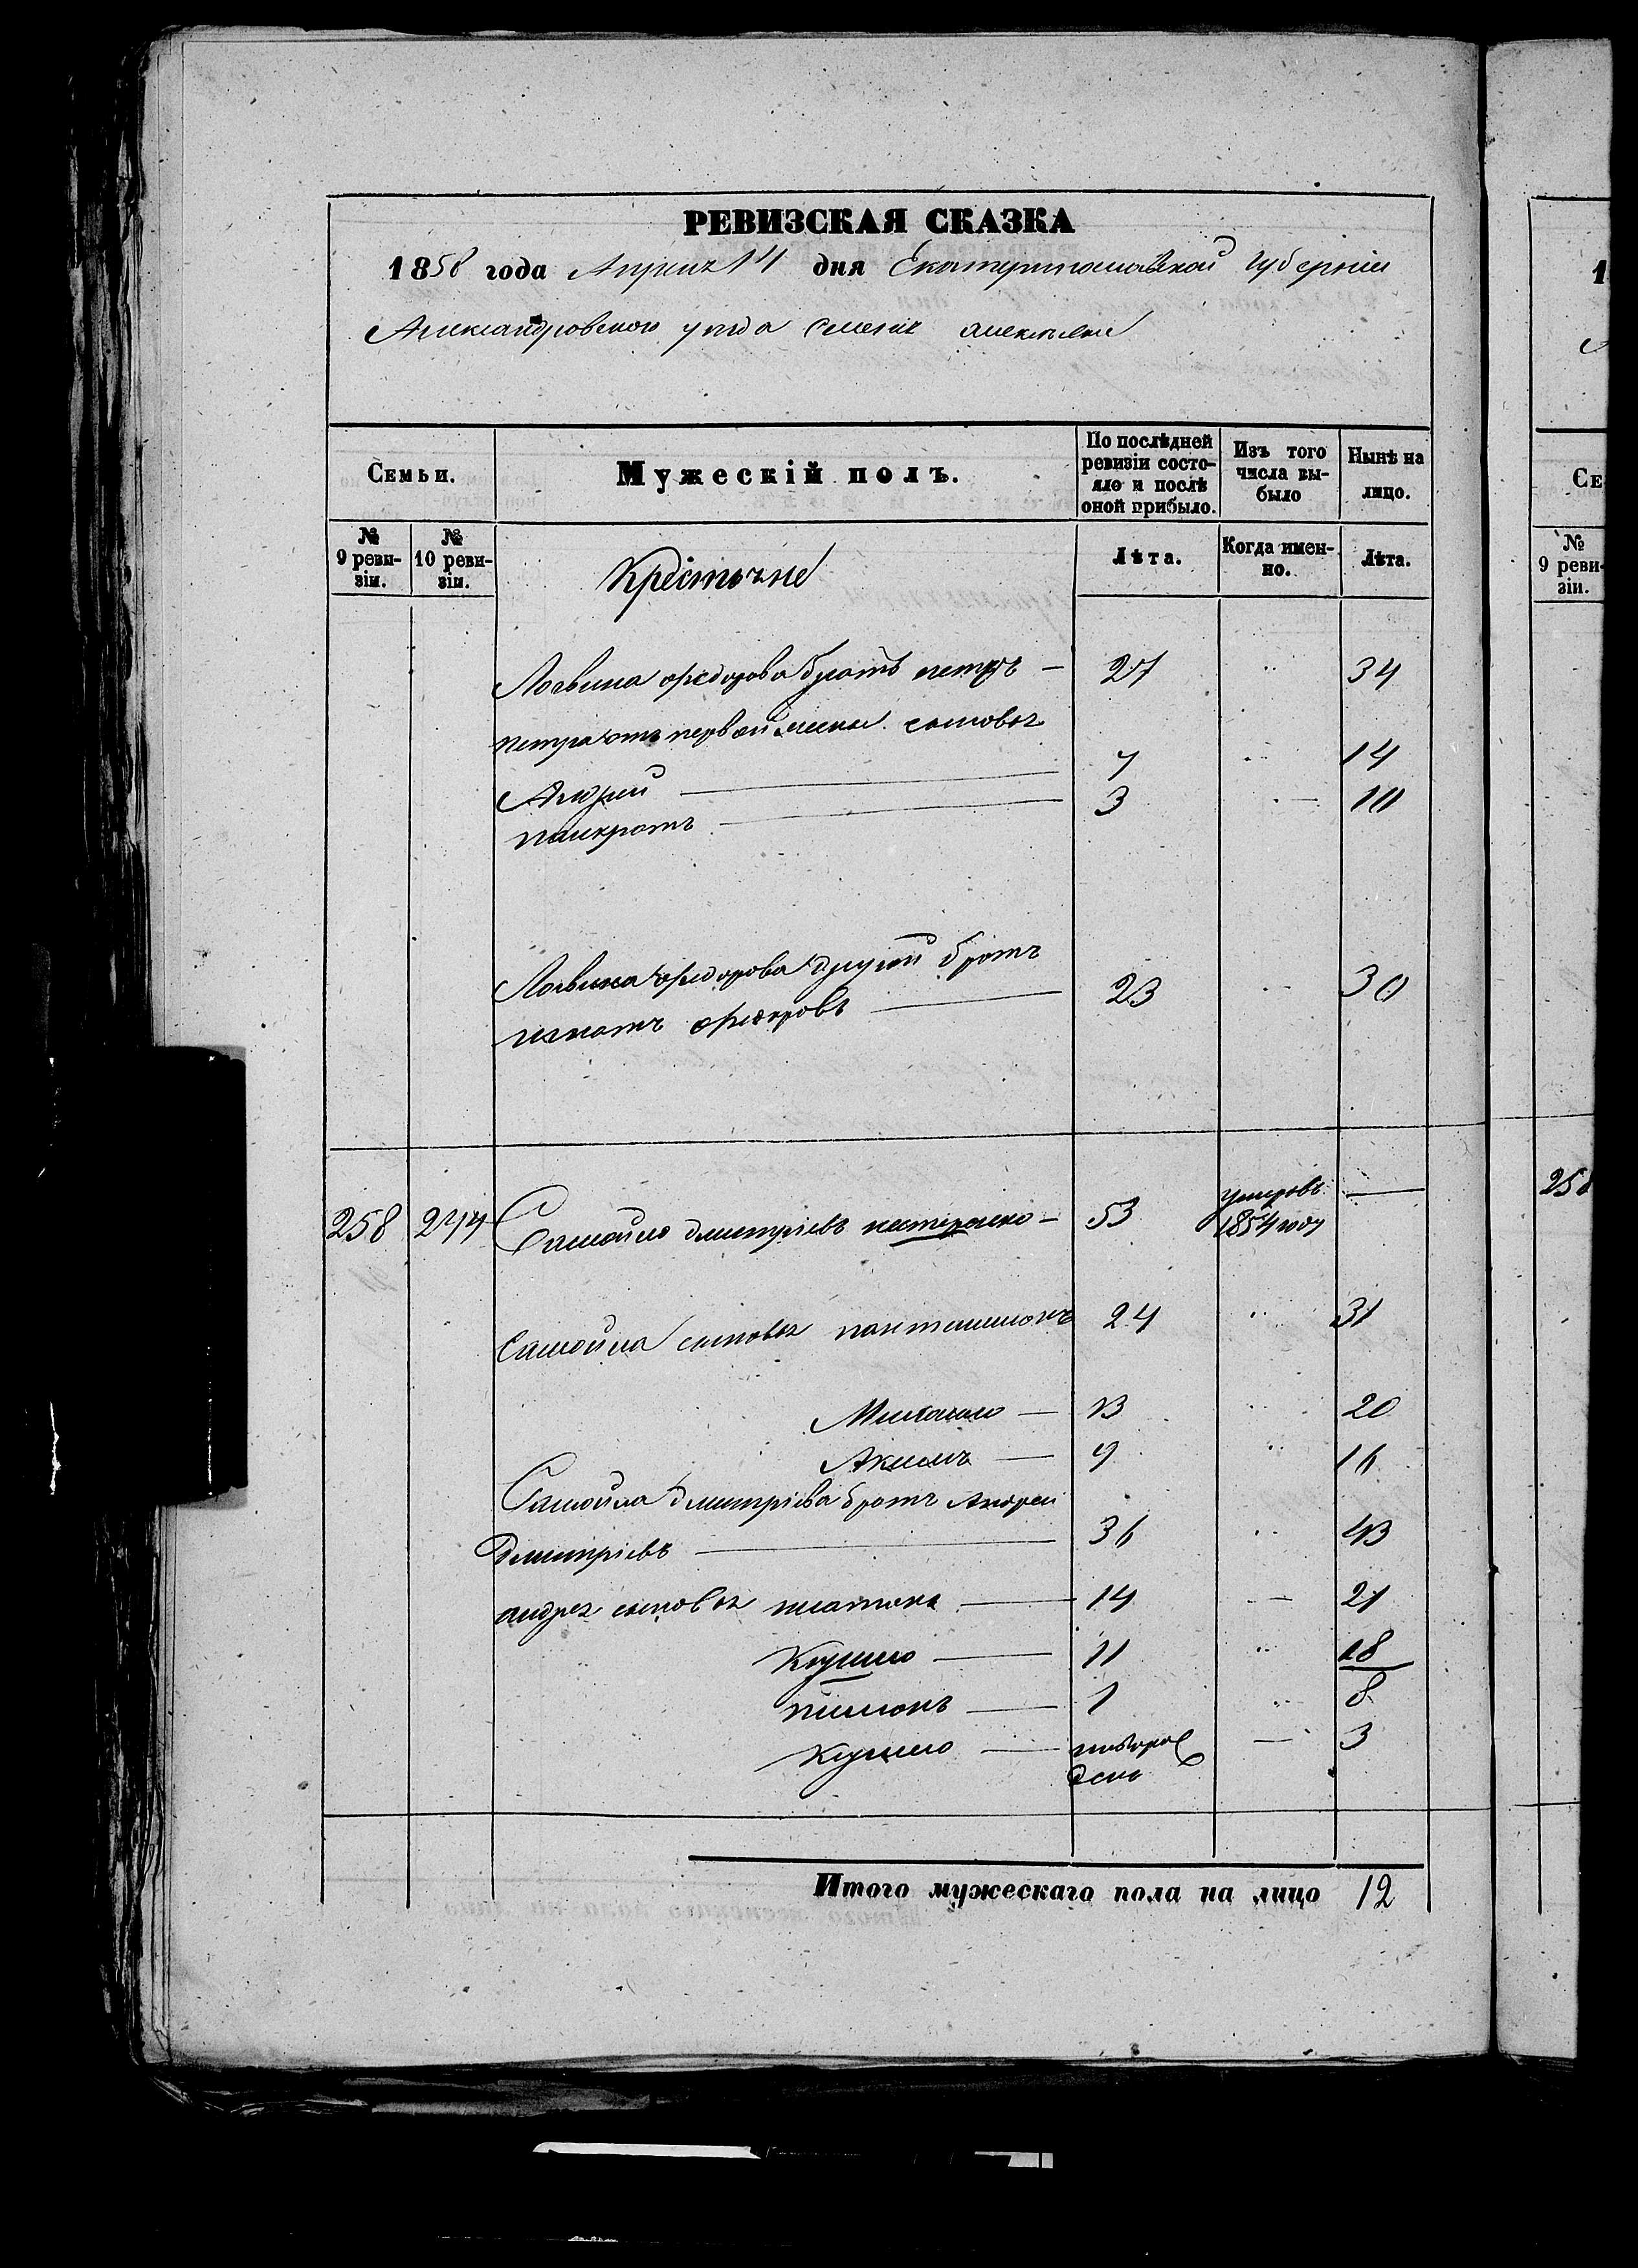 РЕВИЗСКАЯ СКАЗКА
1858 года Апреля 14 дня Екатеринославской губернии
Александровского уезда
Семьи.
Мужескій полъ.
По послѣдней ревизіи состояло и послѣ оной прибыло.
Изъ того числа выбыло
Нынѣ на лицо.
№ 9 ревизіи.
№ 10 ревизіи.
Крестьяне
Лѣта.
Когда именно.
Лѣта.
Логвина федорова братъ петръ — 27 34
петра отъ первой жены сыновья
Андрей 7 14
панкратъ 3 10
Логвина федорова другой братъ
игнатъ федоровъ 23 30
258 244 Самойло дмитріевъ нестеренко — 53 умеръ въ 1854 году —
Самойла сыновья пантелимонъ 24 31
Михайло — 13 20
Акимъ — 9 16
Самойла дмитріева братъ Андрей
дмитріевъ 36 43
андрея сыновья платонъ 14 21
Кирило 11 18
пимонъ 1 8
Кирило новорожденъ — 3
Итого мужескаго пола на лицо 12
1
Се
№
9 реви-
зіи.
258